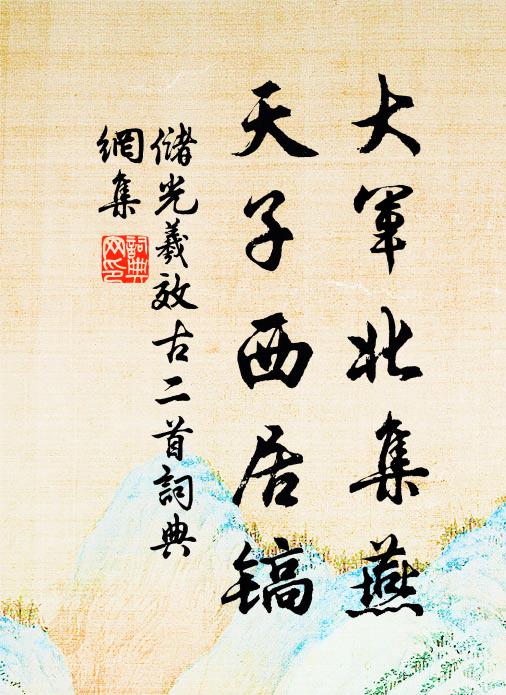 大军北集燕
天子西居镐
储光羲效古二首词典
网集
词典
网印